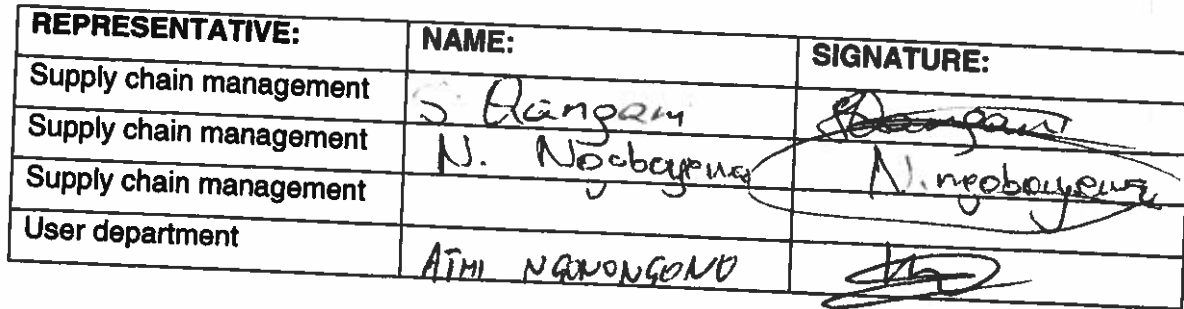 REPRESENTATIVE: NAME: SIGNATURE:
Supply chain management S.
Supply chain management N.
Supply chain management
User department ATHI NGONONGONO